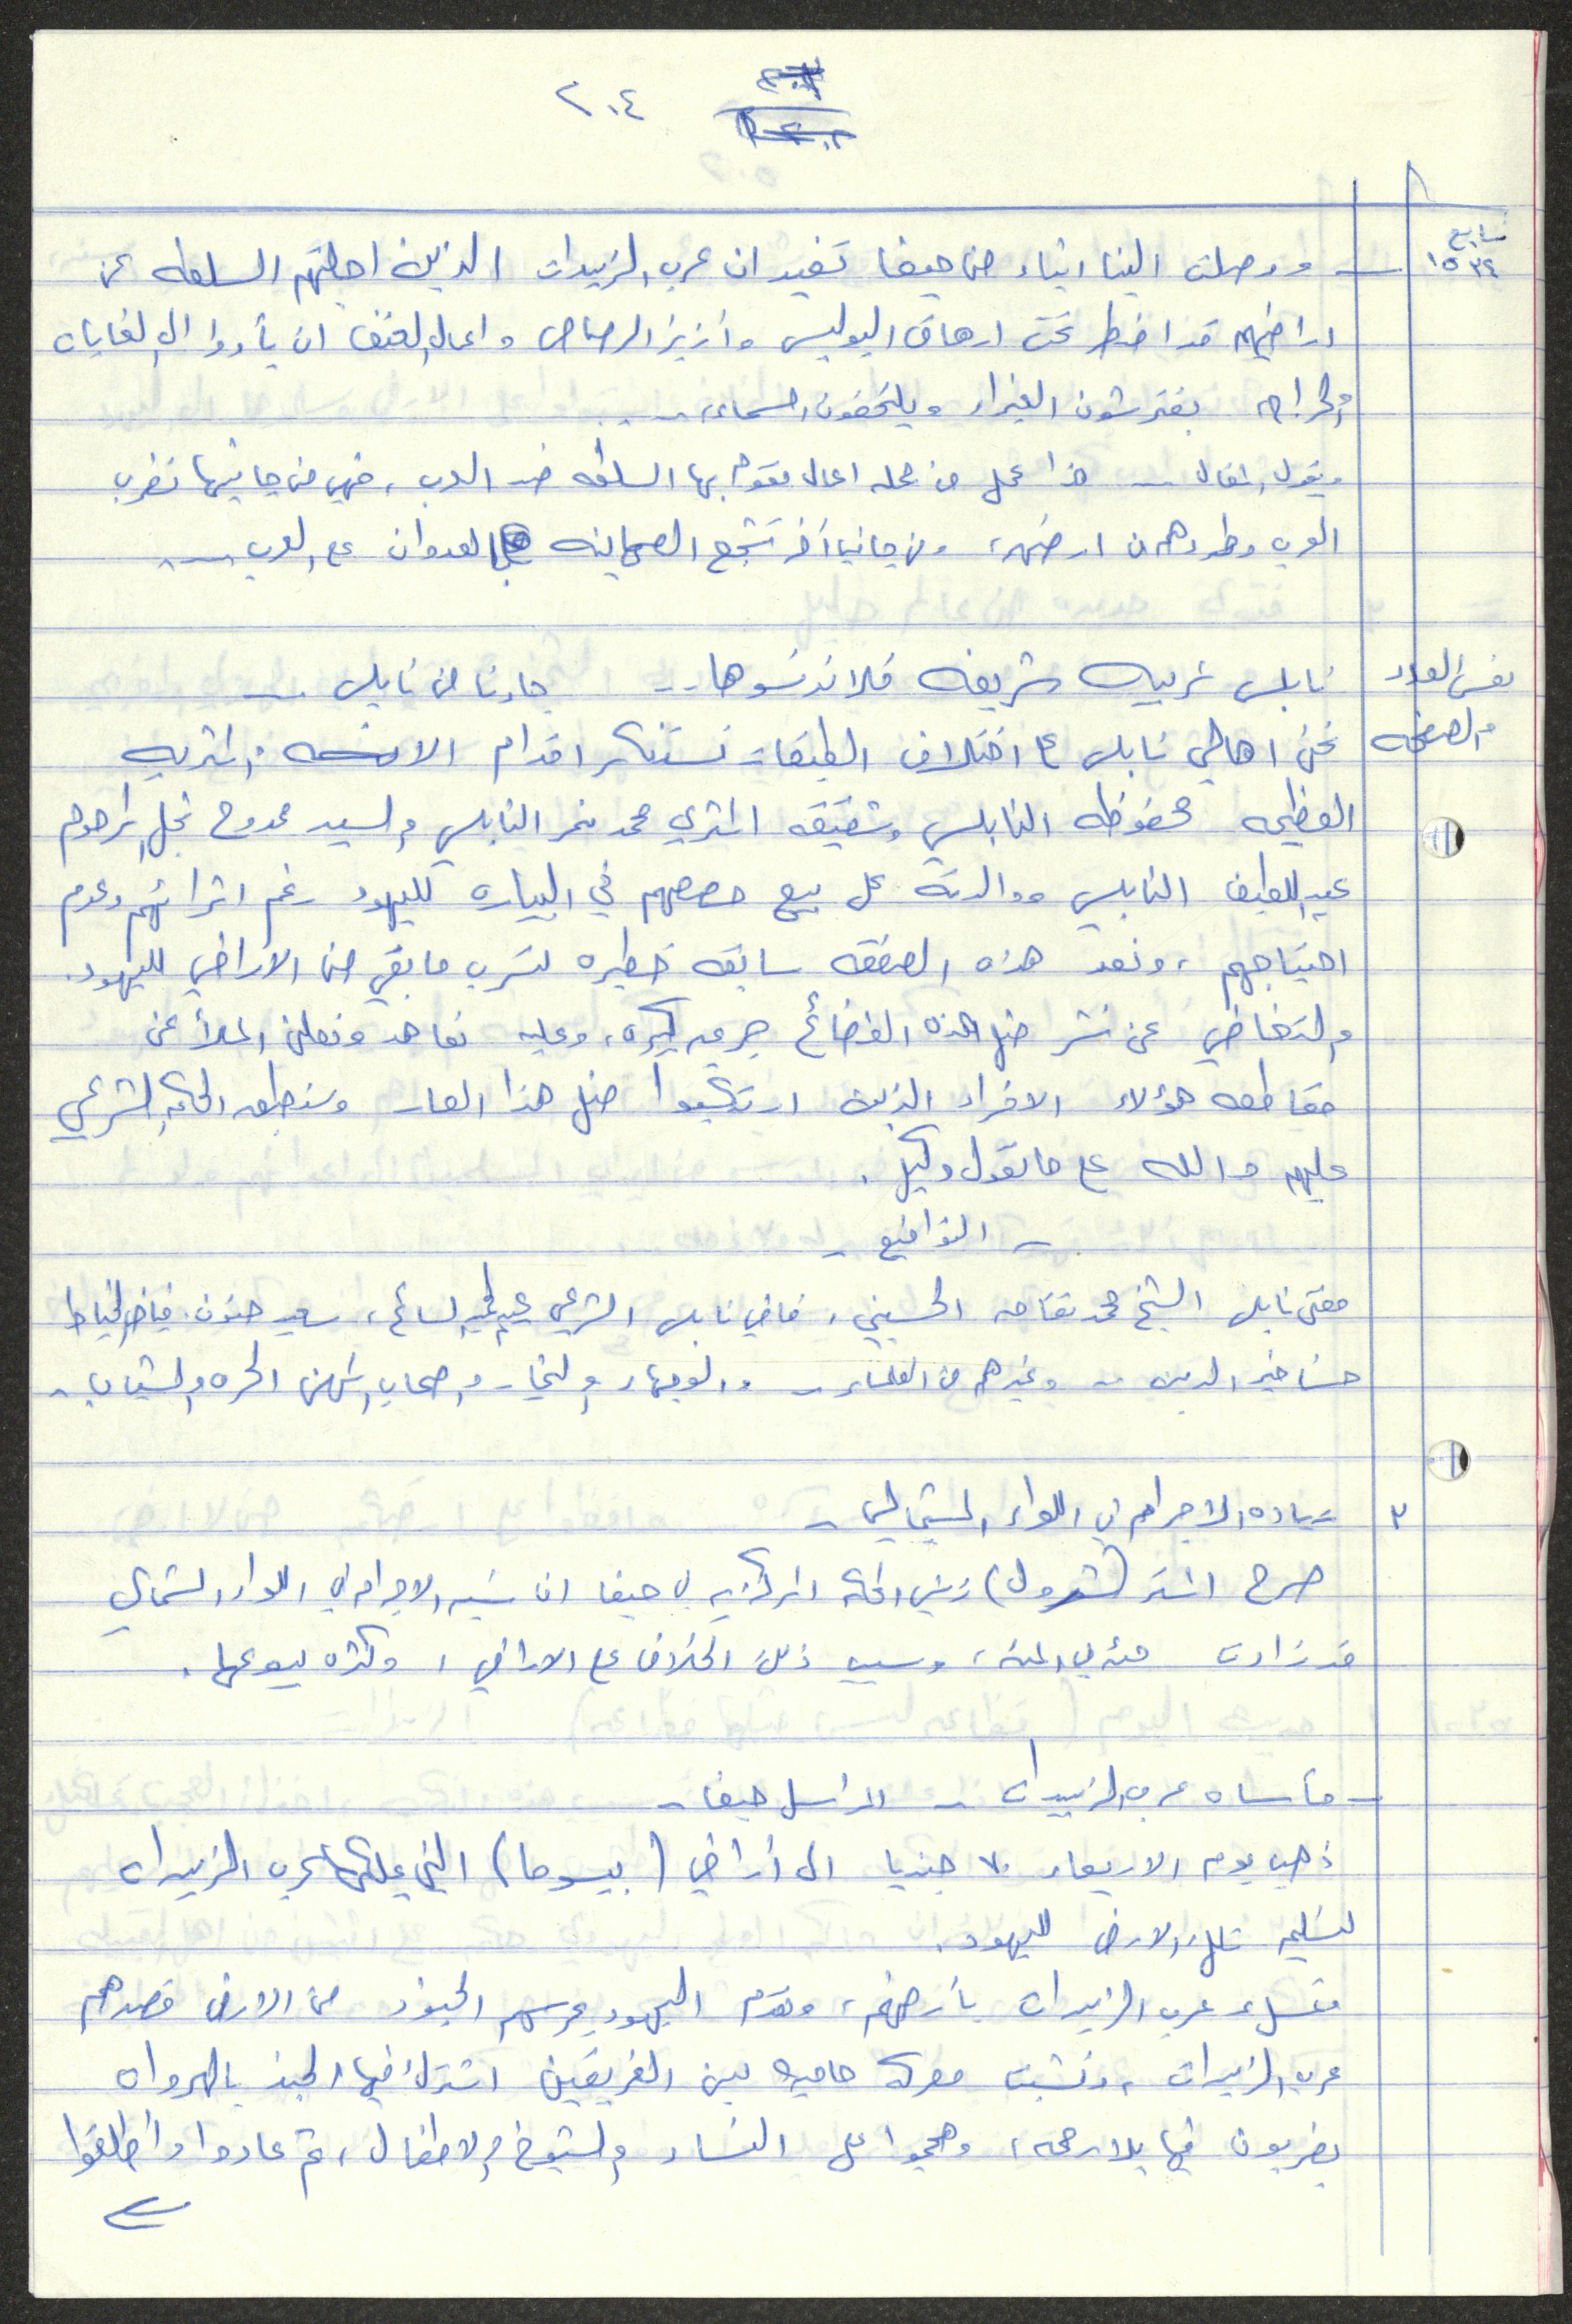 ٢٠٤
تابع
١٥٣٤
ووصلت الينا انباء من حيفا تفيد ان عرب الزبيدات الذين اجلتهم السلطه عن
اراضيهم قد اضطر تحت ارهاق البوليس وأزيز الرصاص واعمال العنف ان يأووا الى الغابات
والحراج يفترشون الغبراء ويلتحفون السماء ..
ويقول المقال .. هذا عمل من جمله اعمال تقوم بها السلطه ضد العرب، فهي من جانبها تضرب
العرب وطردهم من ارضهم، ومن جانب آخر تشجع الصهاينه العدوان على العرب ...
نفس العدد
والصفحه
نابلس عربيه شريفه فلا تدنسوها .. جاءنا من نابلس ..
نحن اهالي نابلس على اختلاف الطبقات نستنكر اقدام الانسه المثريه
الفظيعه محفوظه النابلسي وشقيقه المثري محمد نمر النابلسي والسيد ممدوح نجل المرحوم
عبد اللطيف النابلسي ووالدته على بيع حصصهم في البياره لليهود رغم اثرائهم وعدم
احتياجهم، ونعد هذه الصفقه سابقه خطيره لتسرب ما بقي من الاراضي لليهود.
والتغاضي عن نشر مثل هذه الفضائح جريمه كبيره، وعليه نعاهد ونعلن الملأ عن
مقاطعه هؤلاء الافراد الذين ارتكبوا مثل هذا العار وسنطبق الحكم الشرعي
عليهم والله على ما نقول وكيل.
- التواقيع -
مفتي نابلس الشيخ محمد تفاحه الحسيني، قاضي نابلس الشرعي عبد الحميد السائح، سعيد حنون، فياض الخياط
حسنا خير الدين .. وغيرهم من العلماء .. والوجهاء والتجار واصحاب المهن الحره والشباب ..
٣
زياده الاجرام في اللواء الشمالي ..
صرح المستر (شودل) رئيس المحكمه المركزيه في حيفا ان نسبه الاجرام في اللواء الشمالي
قد زادت مئه في المئه، وسبب ذلك الخلاف على الاراضي، وكثره بيوعها.
- مأساه عرب الزبيدات - لمراسل حيفا -
ذهب يوم الاربعاء ٧٠ جنديا الى أراضي (بيسوما) التي يملكها عرب الزبيدات
لتسليم تلك الارض لليهود.
تمسك عرب الزبيدات بأرضهم، وتقدم اليهود يحرسهم الجنود من الارض فصدهم
عرب الزبيدات، ونشبت معركه حاميه بين الفريقين اشترك فيها الجند بالهروات
يضربون فيها بلا رحمه، وهجموا على النساء والشيوخ والاطفال، ثم عادوا وأطلقوا